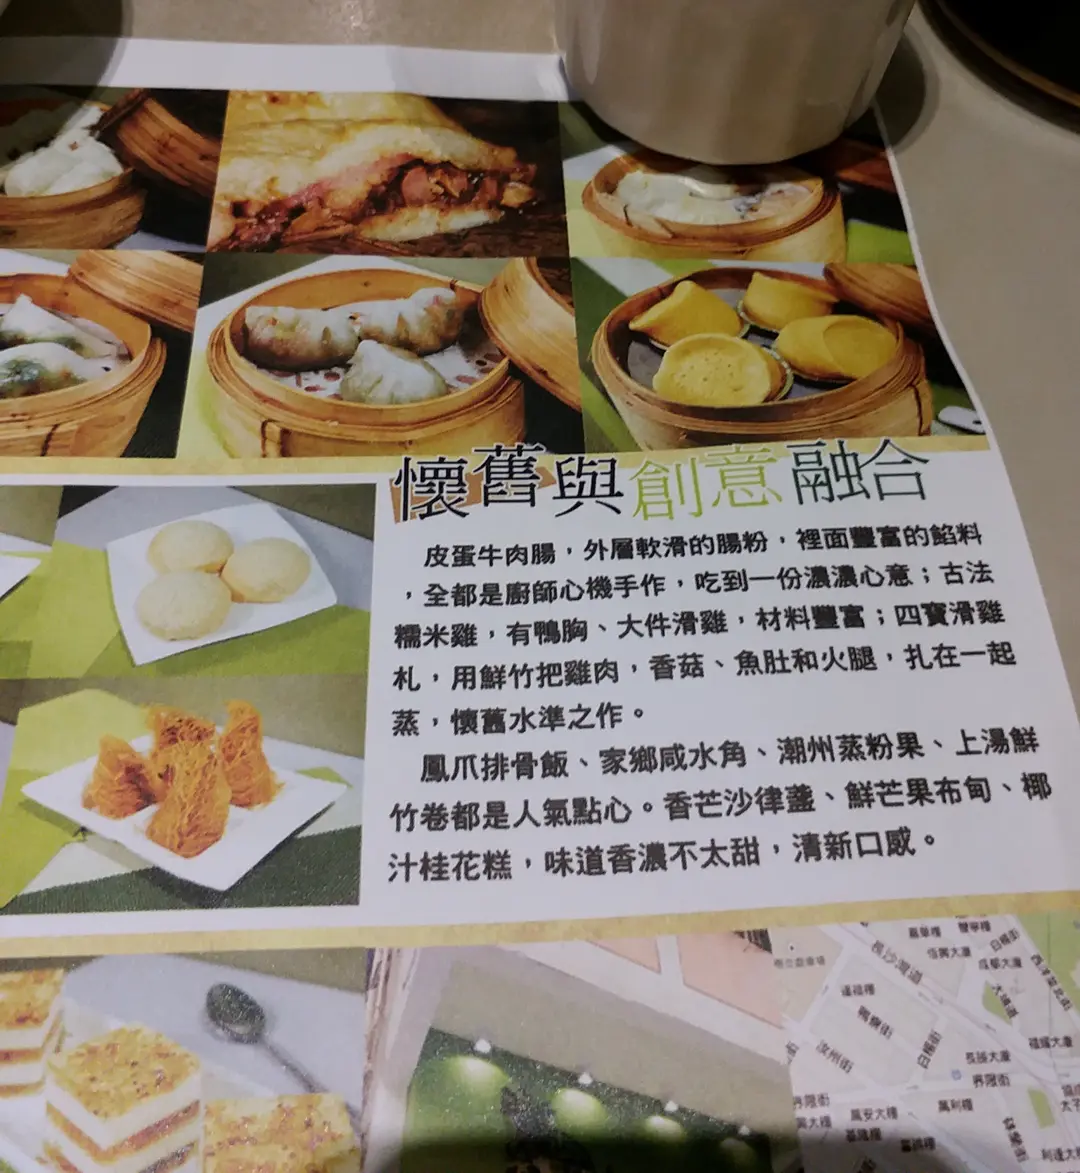 懷舊與創意融合
皮蛋牛肉腸，外層軟滑的腸粉，裡面豐富的餡料
，全都是廚師心機手作，吃到一份濃濃心意；古法
糯米雞，有鴨胸、大件滑雞，材料豐富；四寶滑雞
札，用鮮竹把雞肉，香菇、魚肚和火腿，扎在一起
蒸，懷舊水準之作。
鳳爪排骨飯、家鄉咸水角、潮州蒸粉果、上湯鮮
竹卷都是人氣點心。香芒沙律盞、鮮芒果布甸、椰
汁桂花糕，味道香濃不太甜，清新口感。
長沙灣道
白楊街
大埔道
汝州街
白楊街
界限街
界限街
萬安大樓
萬利樓